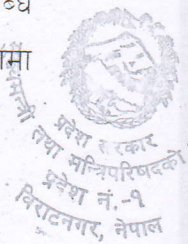 ब्ध
ामा
प्रदेश सरकार
मुख्यमन्त्री तथा मन्त्रिपरिषदको
प्रदेश नं.-१
विराटनगर, नेपाल